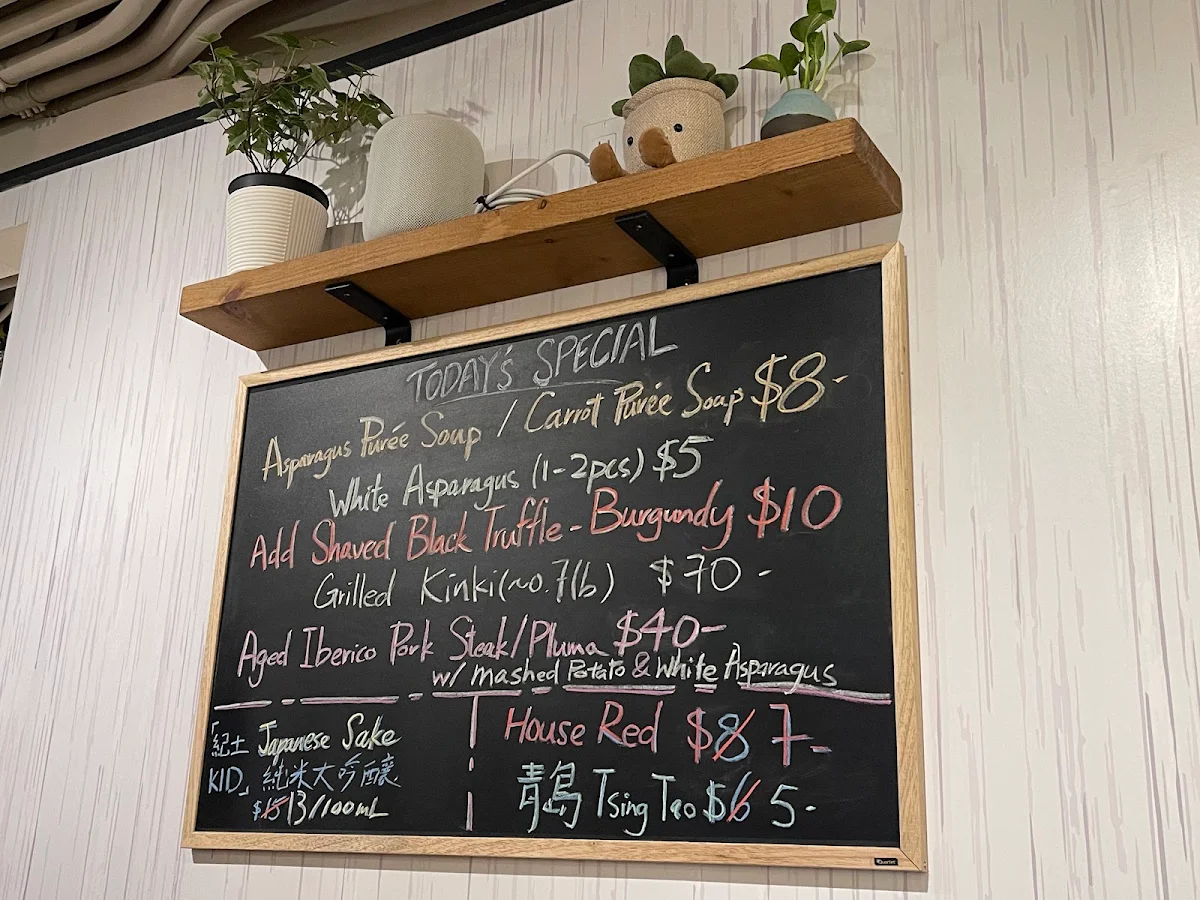 TODAY'S SPECIAL
Asparagus Purée Soup / Carrot Purée Soup $8-
White Asparagus (1-2pcs) $5
Add Shaved Black Truffle - Burgundy $10
Grilled Kinki (~0.7lb) $70-
Aged Iberico Pork Steak/Pluma $40-
w/ mashed Potato & White Asparagus
「紀土 Japanese Sake
KID」 純米大吟釀
$15 13/100mL
House Red $8 7-
青島 Tsing Tao $6 5-
Quartet